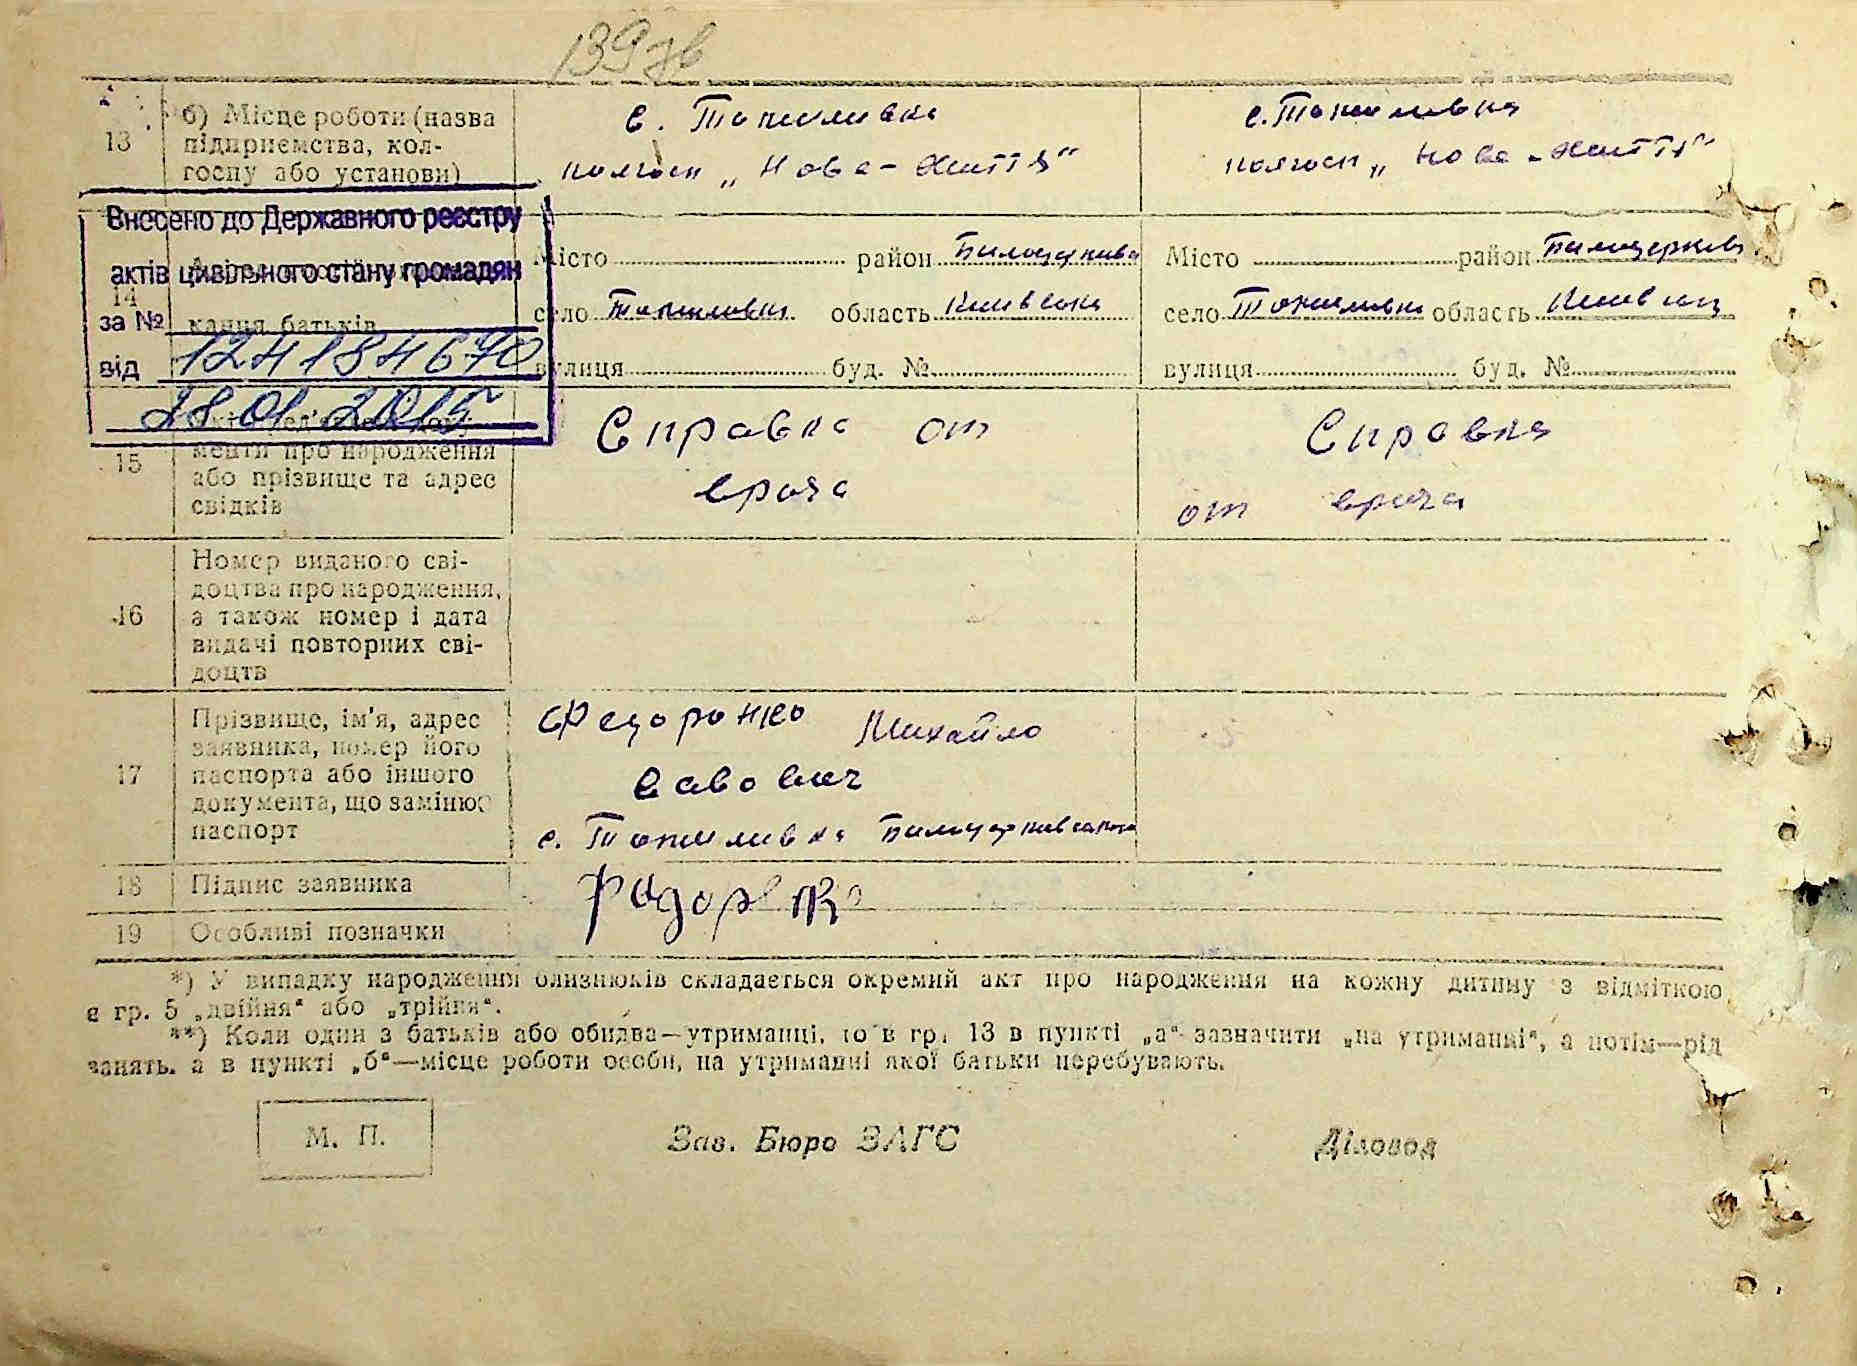 139 зв
13
б) Місце роботи (назва
підприємства, кол-
госпу або установи)
с. Томилівка
колгосп „Нове-життя"
с. Томилівка
колгосп „Нове-життя"
Внесено до Державного реєстру
актів цивільного стану громадян
за №
від
28 01 2015
14
кання батьків
Місто район Білоцерківс
село Томилівка область Київська
вулиця буд. №
Місто район Білоцерків
село Томилівка область Київська
вулиця буд. №
15
менти про народження
або прізвище та адрес
свідків
Справка от
врача
Справка
от врача
16
Номер виданого сві-
доцтва про народження,
а також номер і дата
видачі повторних сві-
доцтв
17
Прізвище, ім'я, адрес
заявника, номер його
паспорта або іншого
документа, що замінює
паспорт
Федоренко Михайло
Савович
с. Томилівка
18
Підпис заявника
Федоренко
19
Особливі позначки
*) У випадку народження близнюків складається окремий акт про народження на кожну дитину з відміткою
в гр. 5 „двійня" або „трійня".
**) Коли один з батьків або обидва—утриманці, то в гр. 13 в пункті „а" зазначити „на утриманні", а потім—рід
занять, а в пункті „б"—місце роботи особи, на утриманні якої батьки перебувають.
М. П.
Зав. Бюро ЗАГС
Діловод